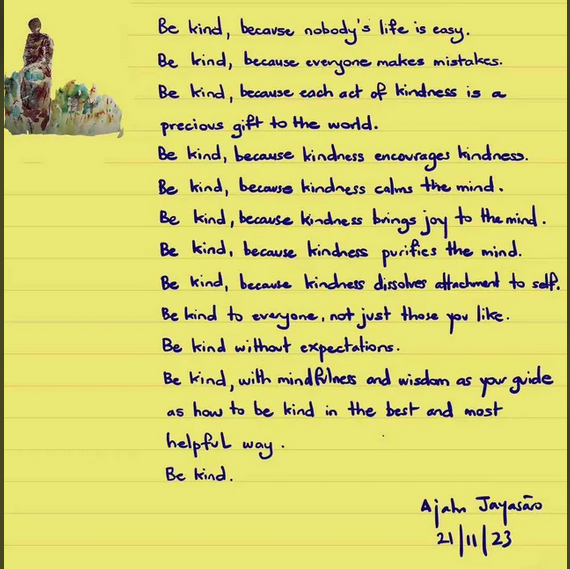 Be kind, because nobody's life is easy.
Be kind, because everyone makes mistakes.
Be kind, because each act of kindness is a
precious gift to the world.
Be kind, because kindness encourages kindness.
Be kind, because kindness calms the mind.
Be kind, because kindness brings joy to the mind.
Be kind, because kindness purifies the mind.
Be kind, because kindness dissolves attachment to self.
Be kind to everyone, not just those you like.
Be kind without expectations.
Be kind, with mindfulness and wisdom as your guide
as how to be kind in the best and most
helpful way.
Be kind.
Ajahn Jayasāro
21/11/23